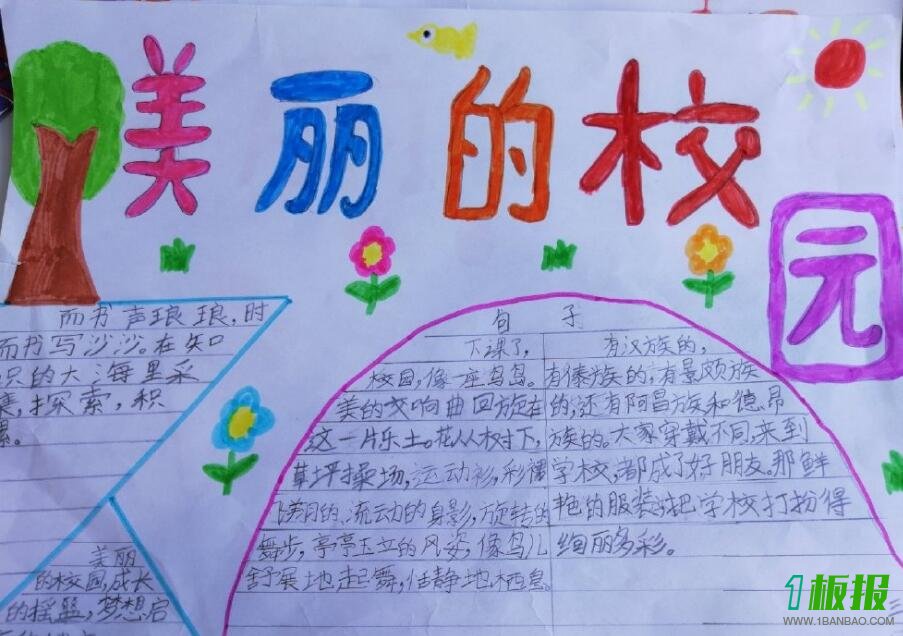 美丽的校园
而书声琅琅,时
而书写沙沙。在知
识的大海里采
探索,积
累。
美丽
的校园,成长
的摇篮,梦想启
句子
下课了,
校园,像一座鸟岛。
美的交响曲回旋在
这一片乐土。花丛树下,
草坪操场,运动衫,彩裙
流动的身影,旋转的
舞步,亭亭玉立的风姿,像鸟儿
舒展地起舞,恬静地栖息。
有汉族的,
有傣族的,有景颇族
的,还有阿昌族和德昂
族的。大家穿戴不同,来到
学校,都成了好朋友。那鲜
艳的服装,把学校打扮得
绚丽多彩。
1板报
WWW.1BANBAO.COM